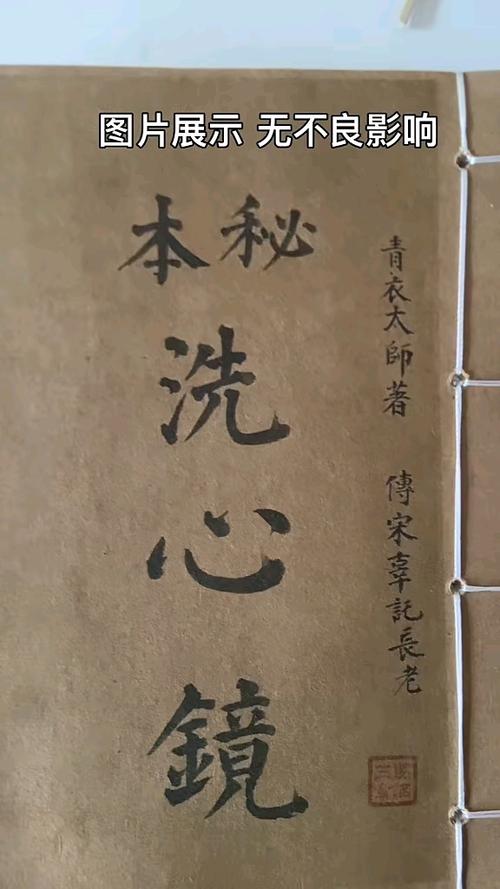 图片展示 无不良影响
秘本
洗心鏡
青衣太師著
傳宋辜託長老